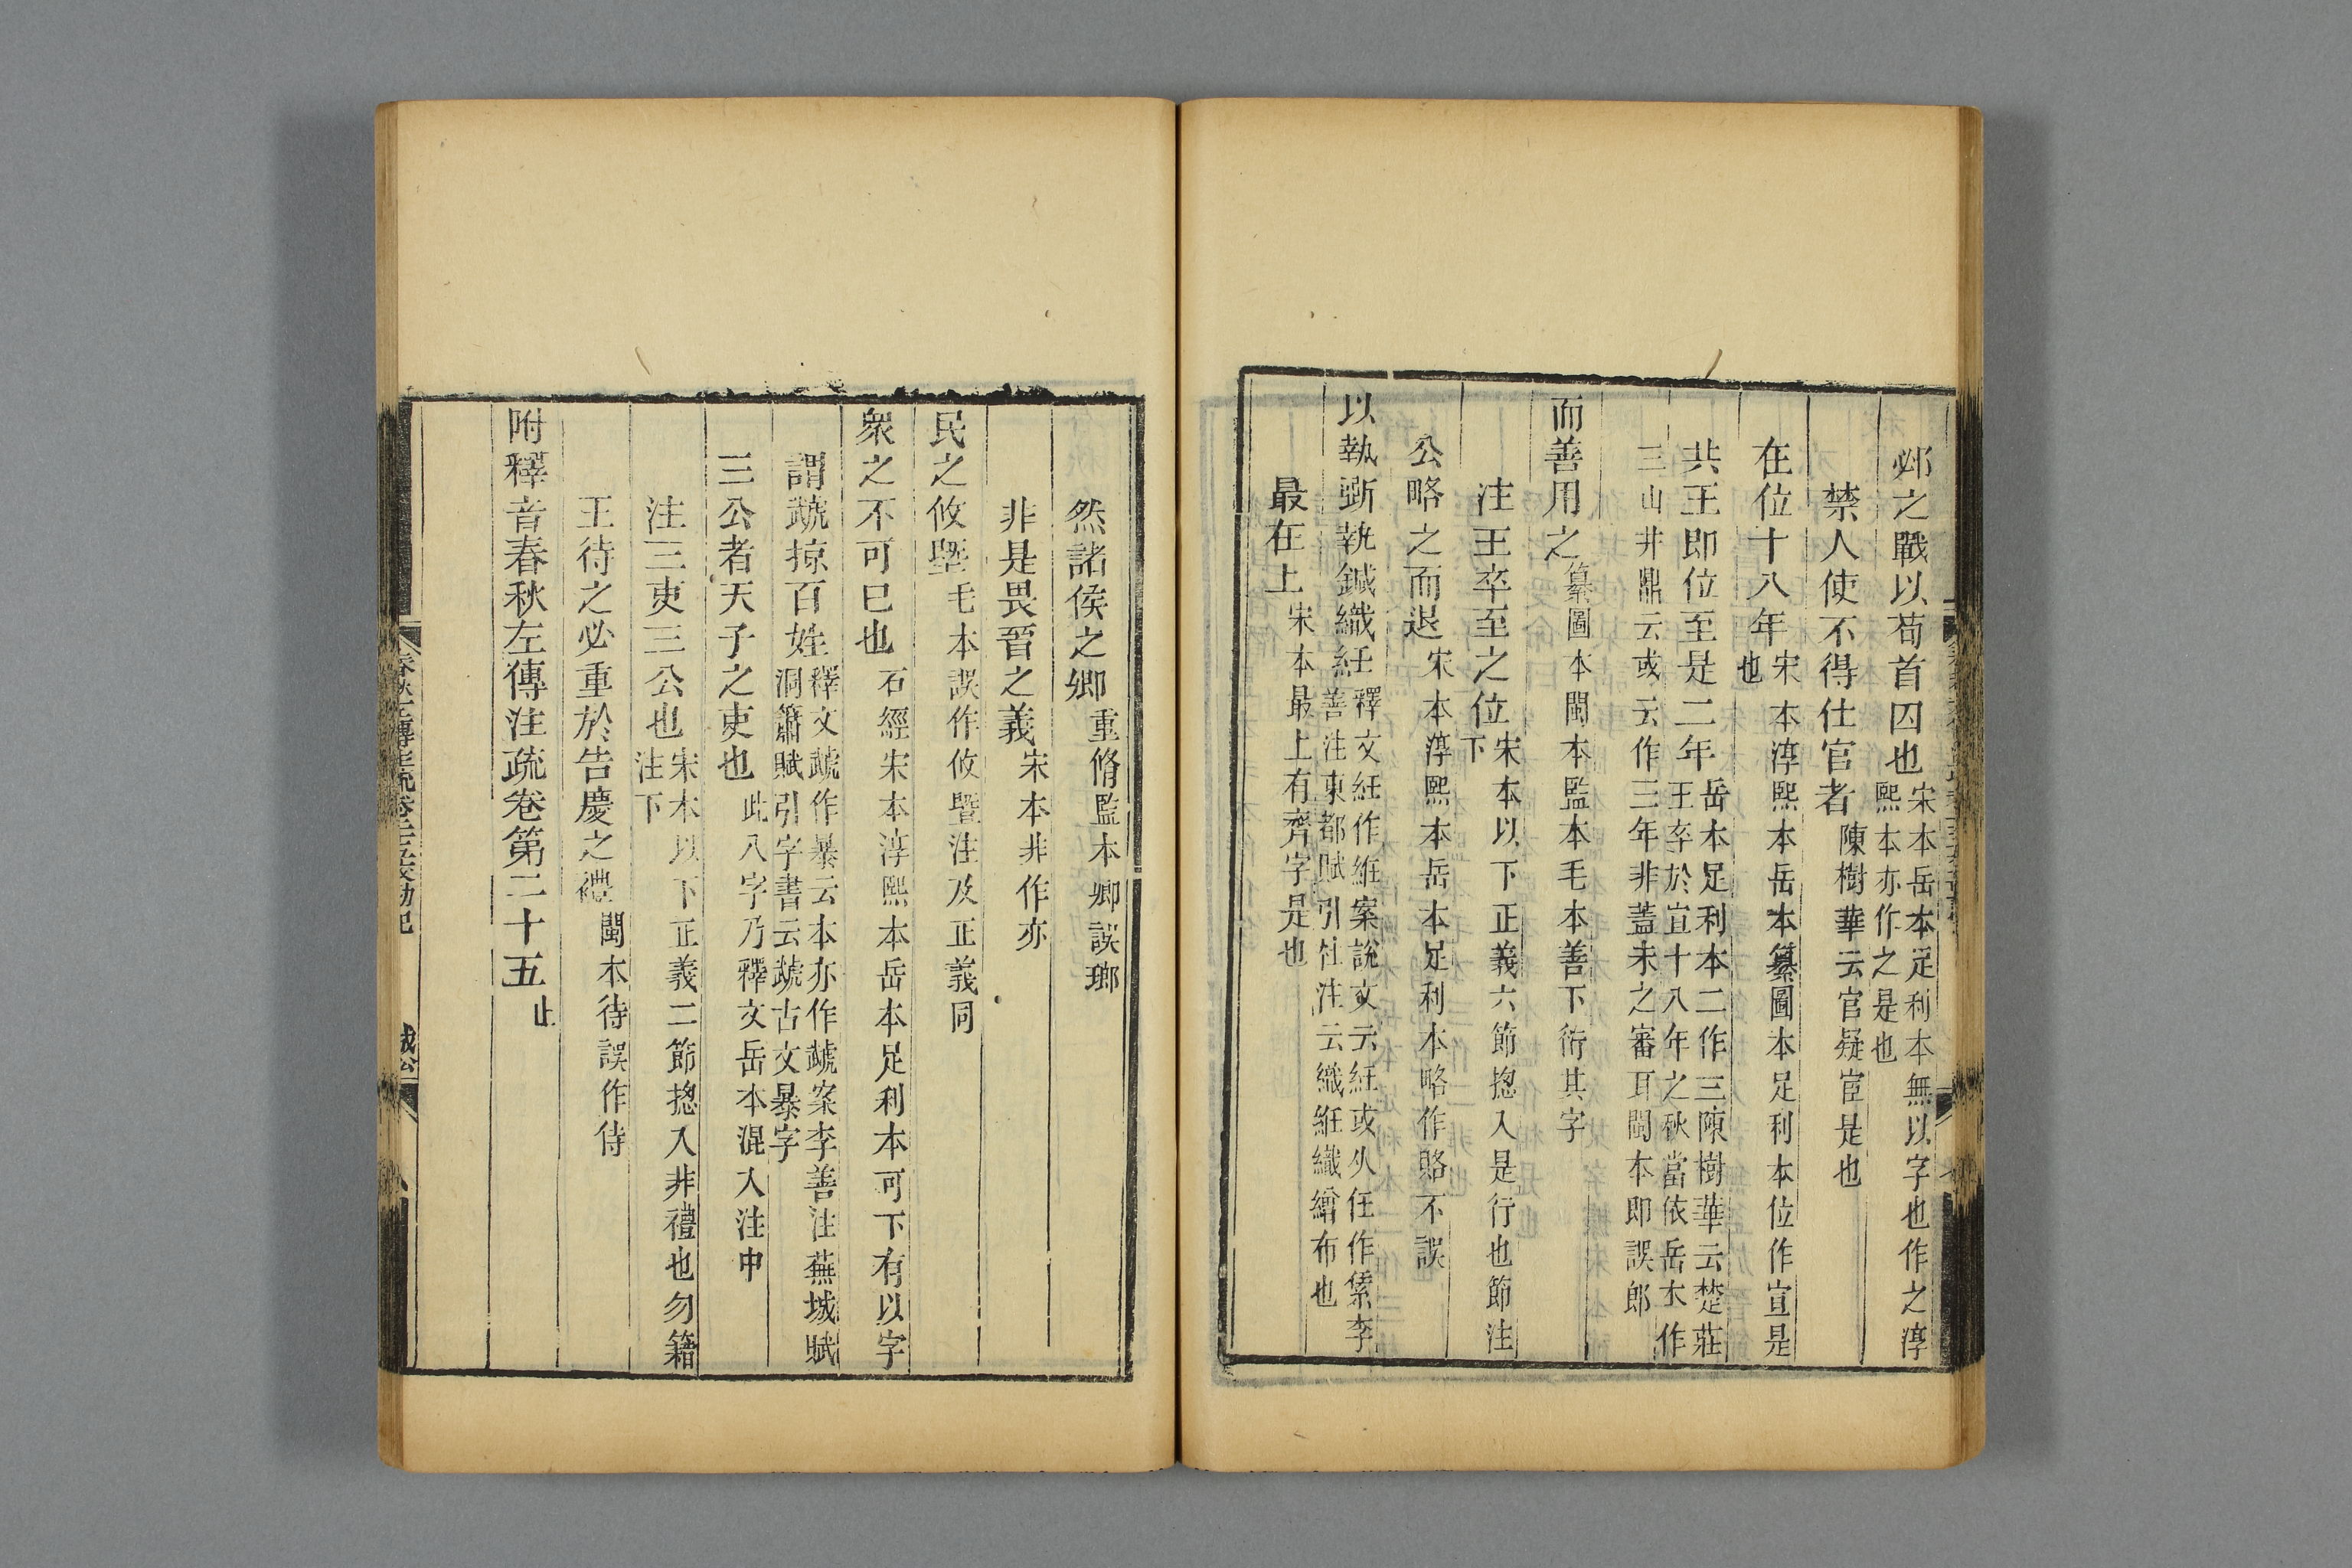 邲之戰以荀首囚也宋本岳本足利本無以字也作之淳
熙本亦作之是也
禁人使不得仕官者陳樹華云官疑宦是也
在位十八年宋本淳熙本岳本纂圖本足利本位作宣是
也
共王即位至是二年岳本足利本二作三陳樹華云楚莊
王卒於宣十八年之秋當依岳本作
三山井鼎云或云作三年非蓋未之審耳閩本即誤郎
而善用之纂圖本閩本監本毛本善下衍其字
注王卒至之位宋本以下正義六節揔入是行也節注
下
公略之而退宋本淳熙本岳本足利本略作賂不誤
以執斲執鍼織紝釋文紝作絍案說文云紝或从任作䋕李
善注東都賦引杜注云織絍織繒布也
最在上宋本最上有齊字是也
然諸侯之卿重脩監本卿誤瑯
非是畏晉之義宋本非作亦
民之攸塈毛本誤作攸曁注及正義同
衆之不可已也石經宋本淳熙本岳本足利本可下有以字
謂虣掠百姓釋文虣作暴云本亦作虣案李善注蕪城賦
洞簫賦引字書云虣古文暴字
三公者天子之吏也此八字乃釋文岳本混入注中
注三吏三公也宋本以下正義二節揔入非禮也勿籍
注下
王待之必重於告慶之禮閩本待誤作侍
附釋音春秋左傳注疏卷第二十五止
春秋左傳注疏卷二十五校勘記
成公